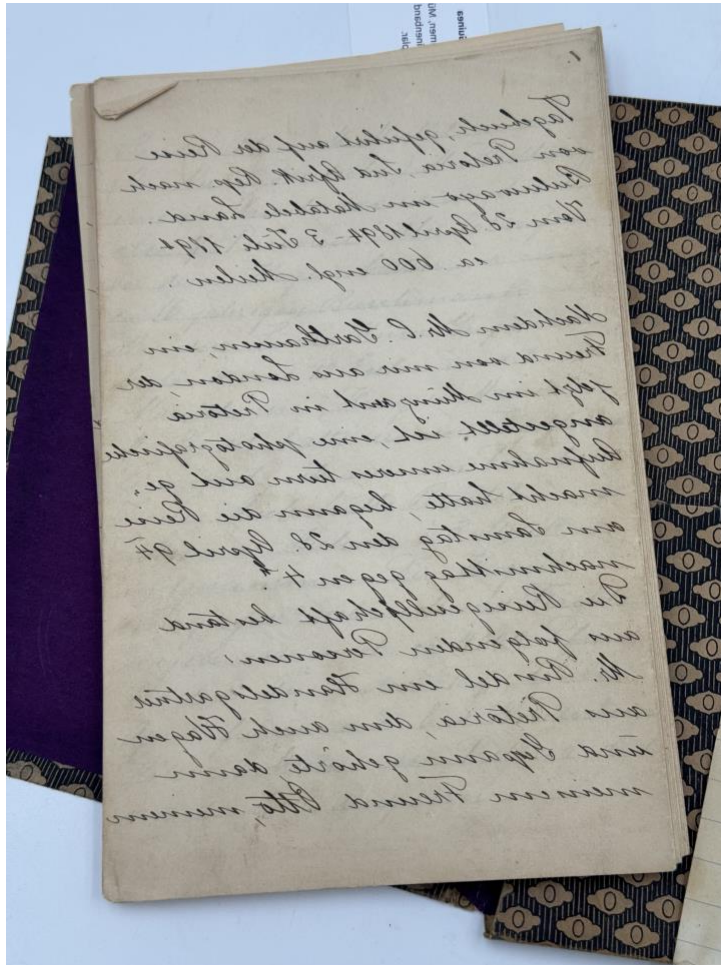 1.
Tagebuch, geführt auf der Reise
von Pretoria, Süd Afrik. Rep. nach
Buluwayo im Matabele Land.
Vom 28 April 1894 - 3 Juli 1894
ca 600 engl. Meilen.
Nachdem Mr C. Garthausen, ein
Freund von mir aus London, der
jetzt im Münzamt in Pretoria
angestellt ist, eine photografische
Aufnahme unseres turn out ge-
macht hatte, begann die Reise
am Samstag den 28. April 94
nachmittag gegen 4 h.
Die Reisegesellschaft bestand
aus folgenden Personen:
M. Rindel ein Handelsgärtner
aus Pretoria, dem auch Wagen
und Gespann gehört dann
meinem Freund Otto, meinem